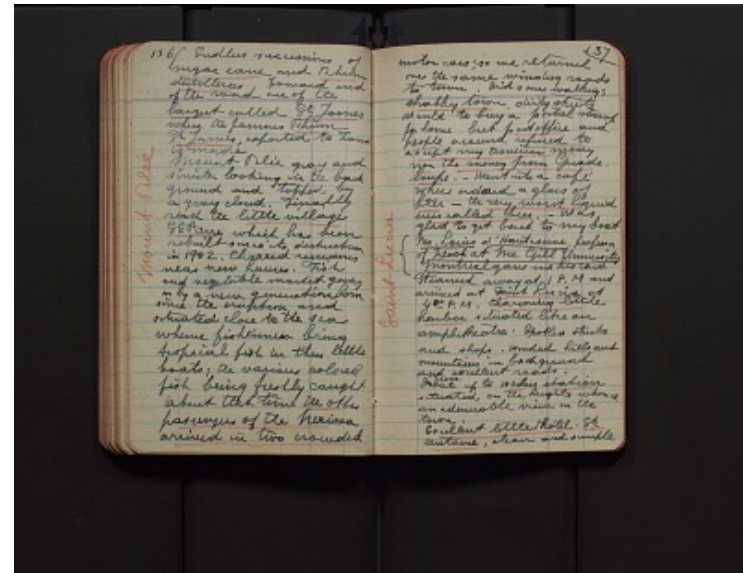 136/ Endless successions of
sugar cane and Rhum
distilleries. Toward end
of the road one of the
largest called St James
where the famous Rhum
St James, exported to
is made
Mount Pelée gray and
sinister looking in the back
ground and topped by
a gray cloud. Finally
reach the little village
St Pierre which has been
rebuilt since its destruction
in 1902. Charred remains
near new houses. Fish
and vegetable market going
on by a new generation born
since the eruption and
situated close to the sea
where fishermen bring
tropical fish in their little
boats; the various colored
fish being freshly caught
about that time the other
passengers of the Nerissa
arrived in two crowded
Mount Pelée
137
motor cars; so we returned
over the same winding roads
to town. Did some walking;
shabby town, dirty streets
wanted to buy a postal stamp
for home but post office and
people around refused to
accept my American money
nor the money from Guade
loupe. - Went into a café
where ordered a glass of
beer - the very worst liquid
ever called beer. - Was
glad to get back to my boat
Mr. Louis d' Hauteserve, professor
of french at Mc Gill University
Montreal gave me his card
Steamed away at 1 P.M and
arrived at Saint Lucia at
P.M. Charming little
harbor situated like an
amphitheatre. Spotless streets
and shops. Wooded hills and
mountains in background
and excellent roads.
up to station
situated on the heights where
an admirable view on the
town.
Excellent little hotel. St
Antoine, clean and simple
Saint Lucia